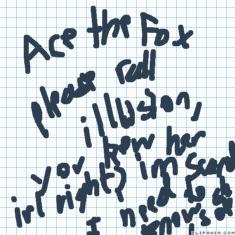 Ace the Fox
please call
illusion,
you know her
irl right? im scared
I need to
FLIPANIM.COM